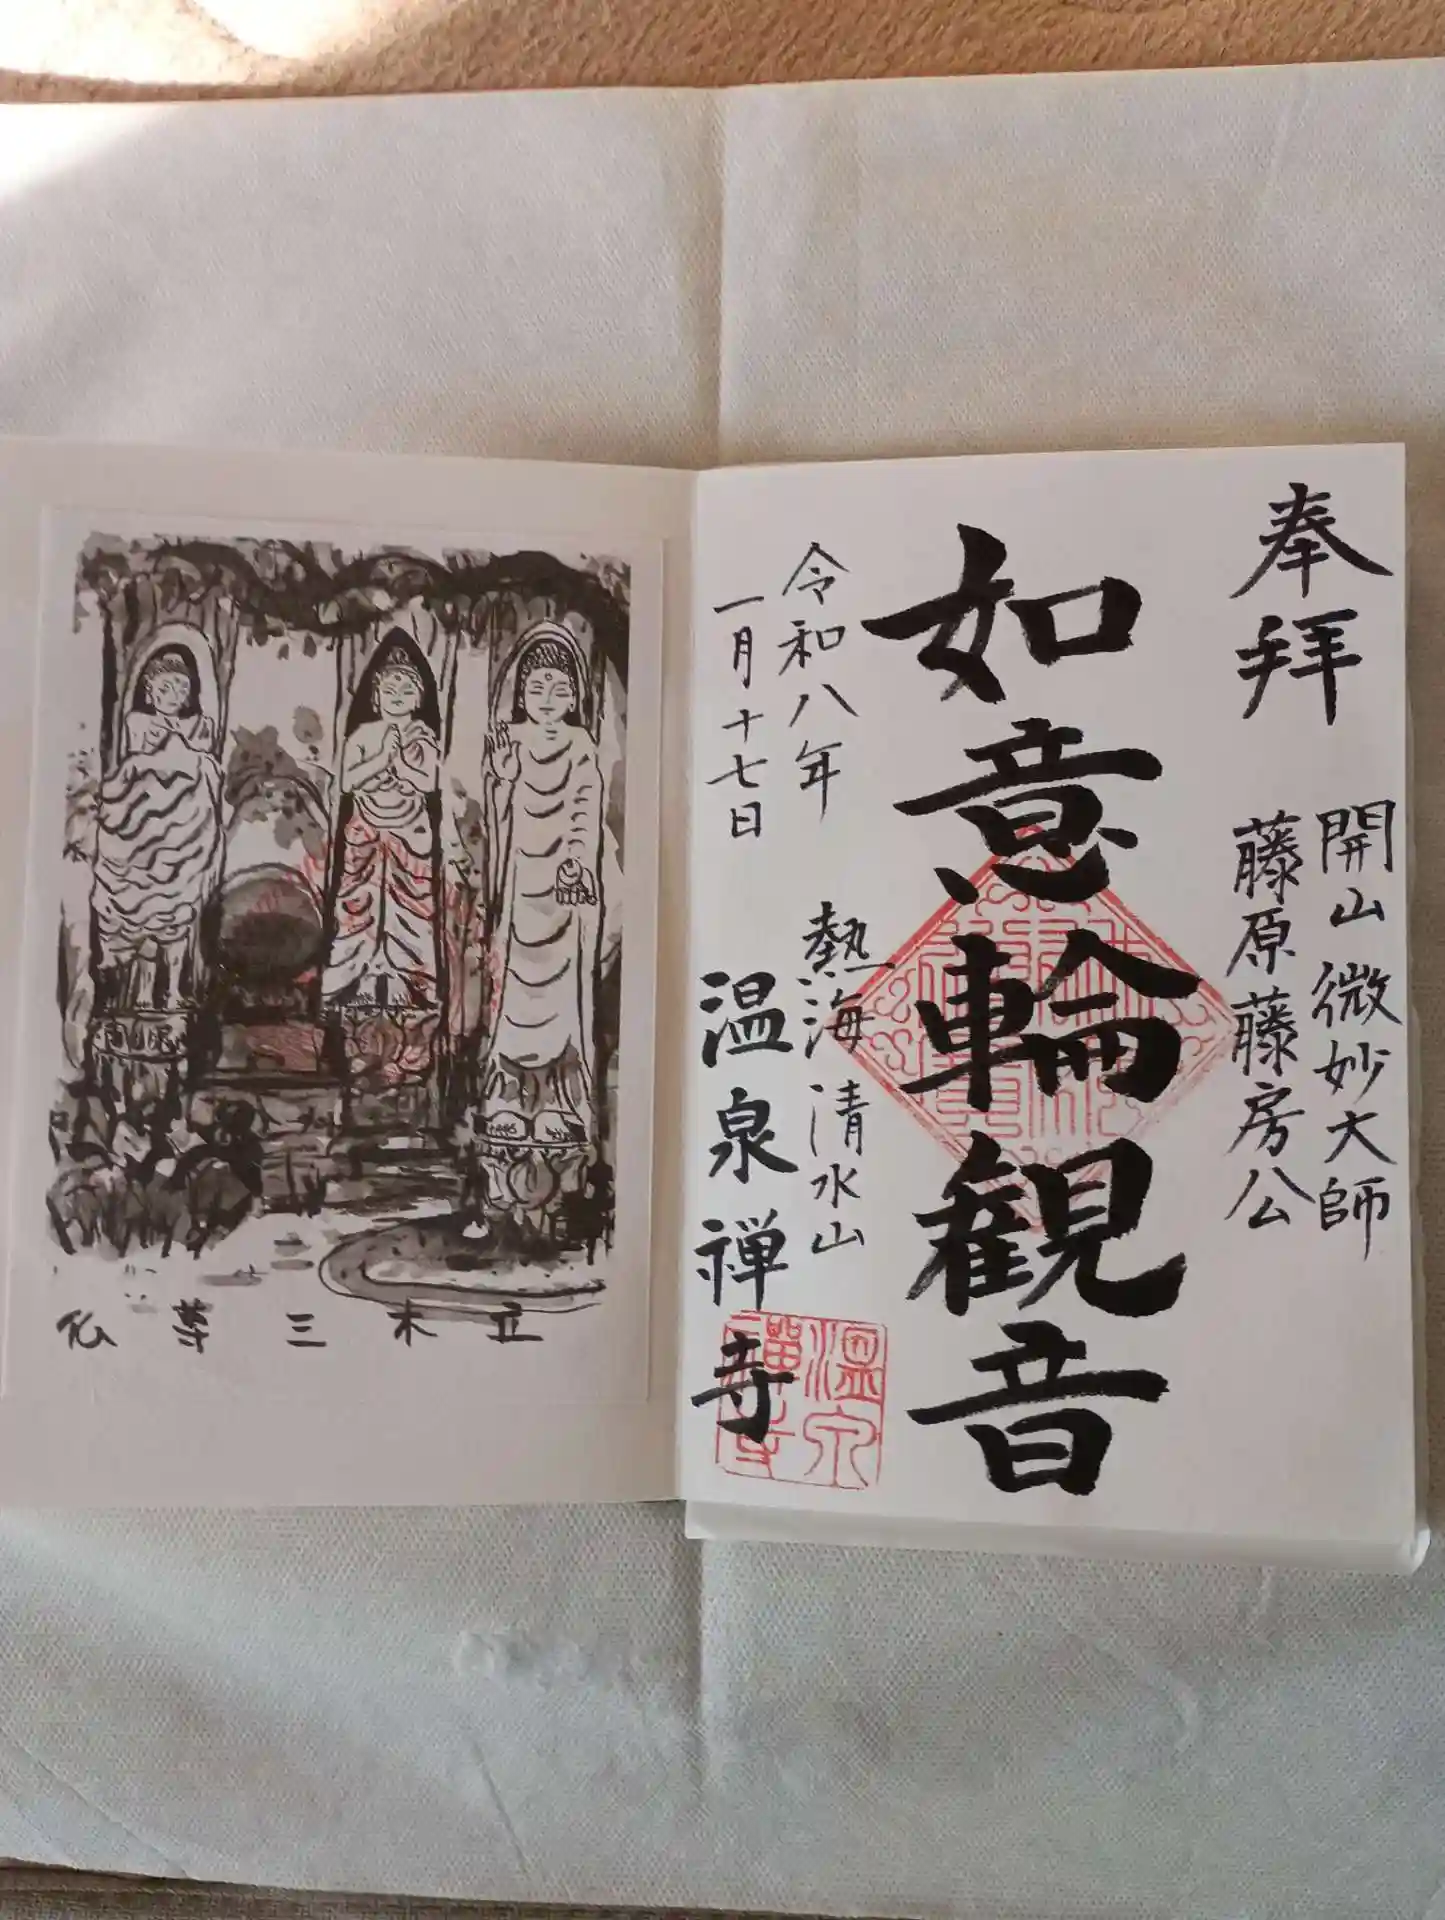 奉拝
開山 微妙大師
藤原藤房公
如意輪観音
令和八年
一月十七日
熱海 清水山
温泉禅寺
立木三尊仏